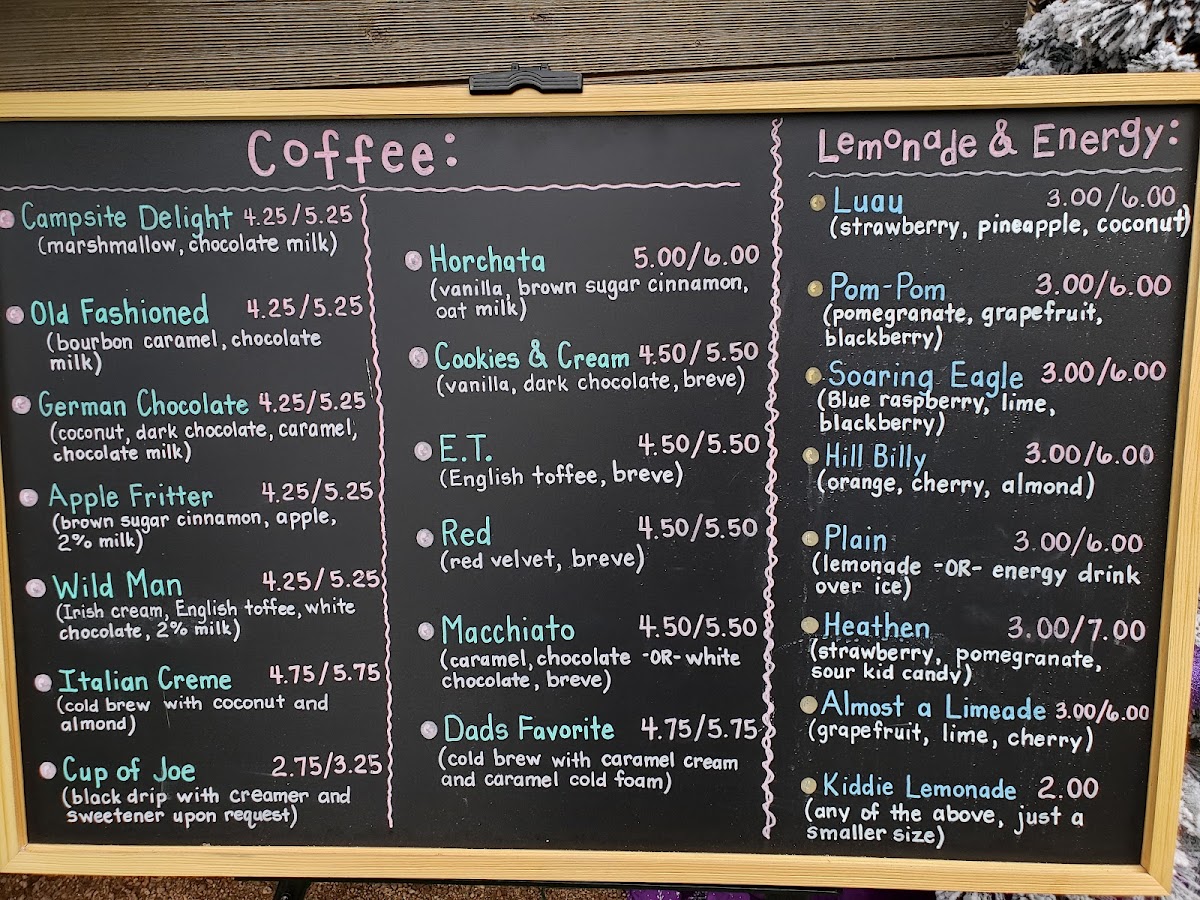 Coffee:
Campsite Delight 4.25/5.25
(marshmallow, chocolate milk)
Old Fashioned 4.25/5.25
(bourbon caramel, chocolate
milk)
German Chocolate 4.25/5.25
(coconut, dark chocolate, caramel,
chocolate milk)
Apple Fritter 4.25/5.25
(brown sugar cinnamon, apple,
2% milk)
Wild Man 4.25/5.25
(Irish cream, English toffee, white
chocolate, 2% milk)
Italian Creme 4.75/5.75
(cold brew with coconut and
almond)
Cup of Joe 2.75/3.25
(black drip with creamer and
sweetener upon request)
Horchata 5.00/6.00
(vanilla, brown sugar cinnamon,
oat milk)
Cookies & Cream 4.50/5.50
(vanilla, dark chocolate, breve)
E.T. 4.50/5.50
(English toffee, breve)
Red 4.50/5.50
(red velvet, breve)
Macchiato 4.50/5.50
(caramel, chocolate -OR- white
chocolate, breve)
Dads Favorite 4.75/5.75
(cold brew with caramel cream
and caramel cold foam)
Lemonade & Energy:
Luau 3.00/6.00
(strawberry, pineapple, coconut)
Pom-Pom 3.00/6.00
(pomegranate, grapefruit,
blackberry)
Soaring Eagle 3.00/6.00
(Blue raspberry, lime,
blackberry)
Hill Billy 3.00/6.00
(orange, cherry, almond)
Plain 3.00/6.00
(lemonade -OR- energy drink
over ice)
Heathen 3.00/7.00
(strawberry, pomegranate,
sour kid candy)
Almost a Limeade 3.00/6.00
(grapefruit, lime, cherry)
Kiddie Lemonade 2.00
(any of the above, just a
smaller size)